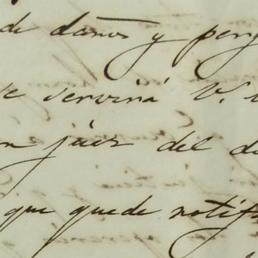 de daños y perj
se servirá V.
n juez del d
que quede notif